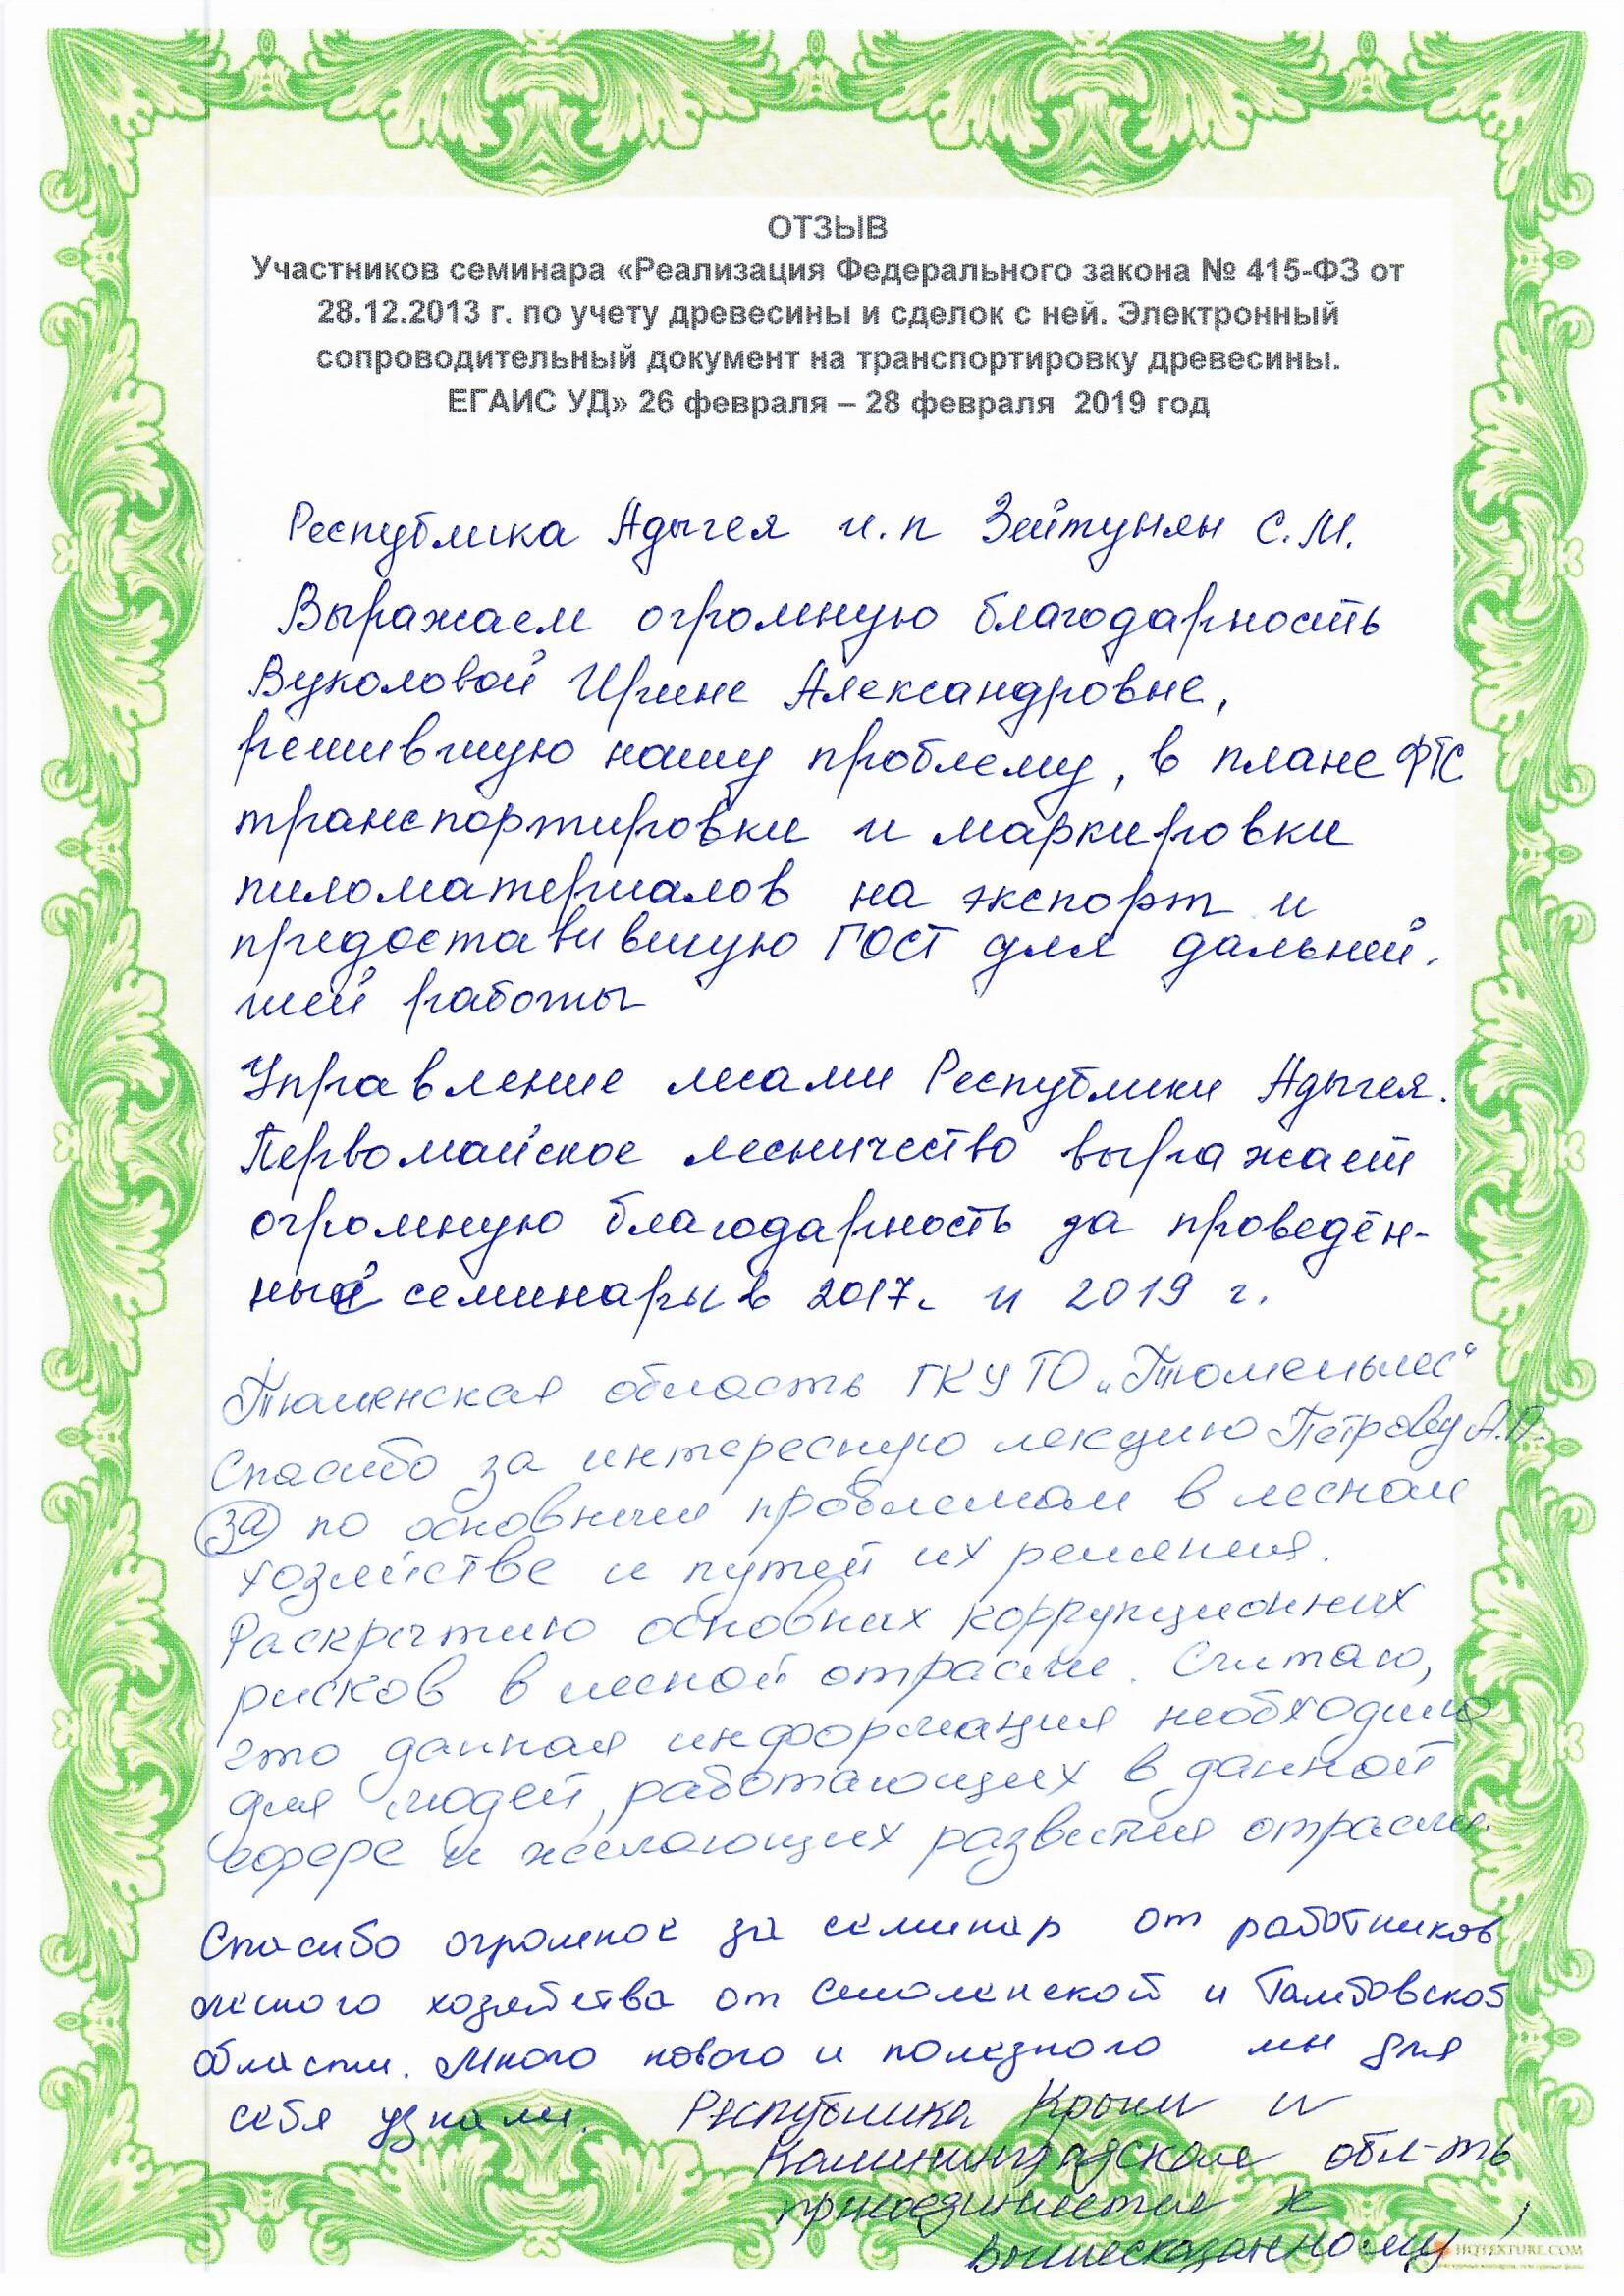 ОТЗЫВ
Участников семинара «Реализация Федерального закона № 415-ФЗ от
28.12.2013 г. по учету древесины и сделок с ней. Электронный
сопроводительный документ на транспортировку древесины.
ЕГАИС УД» 26 февраля – 28 февраля 2019 год
Республика Адыгея и.п Зейтунян С.М.
Выражаем огромную благодарность
Вуколовой Ирине Александровне,
решившую нашу проблему, в плане ФТС
транспортировки и маркировки
пиломатериалов на экспорт и
предоставившую ГОСТ для дальней-
шей работы
Управление лесами Республики Адыгея.
Первомайское лесничество выражает
огромную благодарность за проведён-
ные семинары в 2017г. и 2019 г.
Тюменская область ГКУ ТО „Тюменьлес“
Спасибо за интересную лекцию Петрову А.П.
за по основным проблемам в лесном
хозяйстве и путей их решения.
Раскрытию основных коррупционных
рисков в лесной отрасли. Считаю,
что данная информация необходима
для людей, работающих в данной
сфере и желающих развития отрасли.
Спасибо огромное за семинар от работников
лесного хозяйства от Смоленской и Тамбовской
области. Много нового и полезного мы для
себя узнали. Республика Крым и
Калининградская обл-ть
присоединяется к
вышесказанному
HQTEXTURE.COM